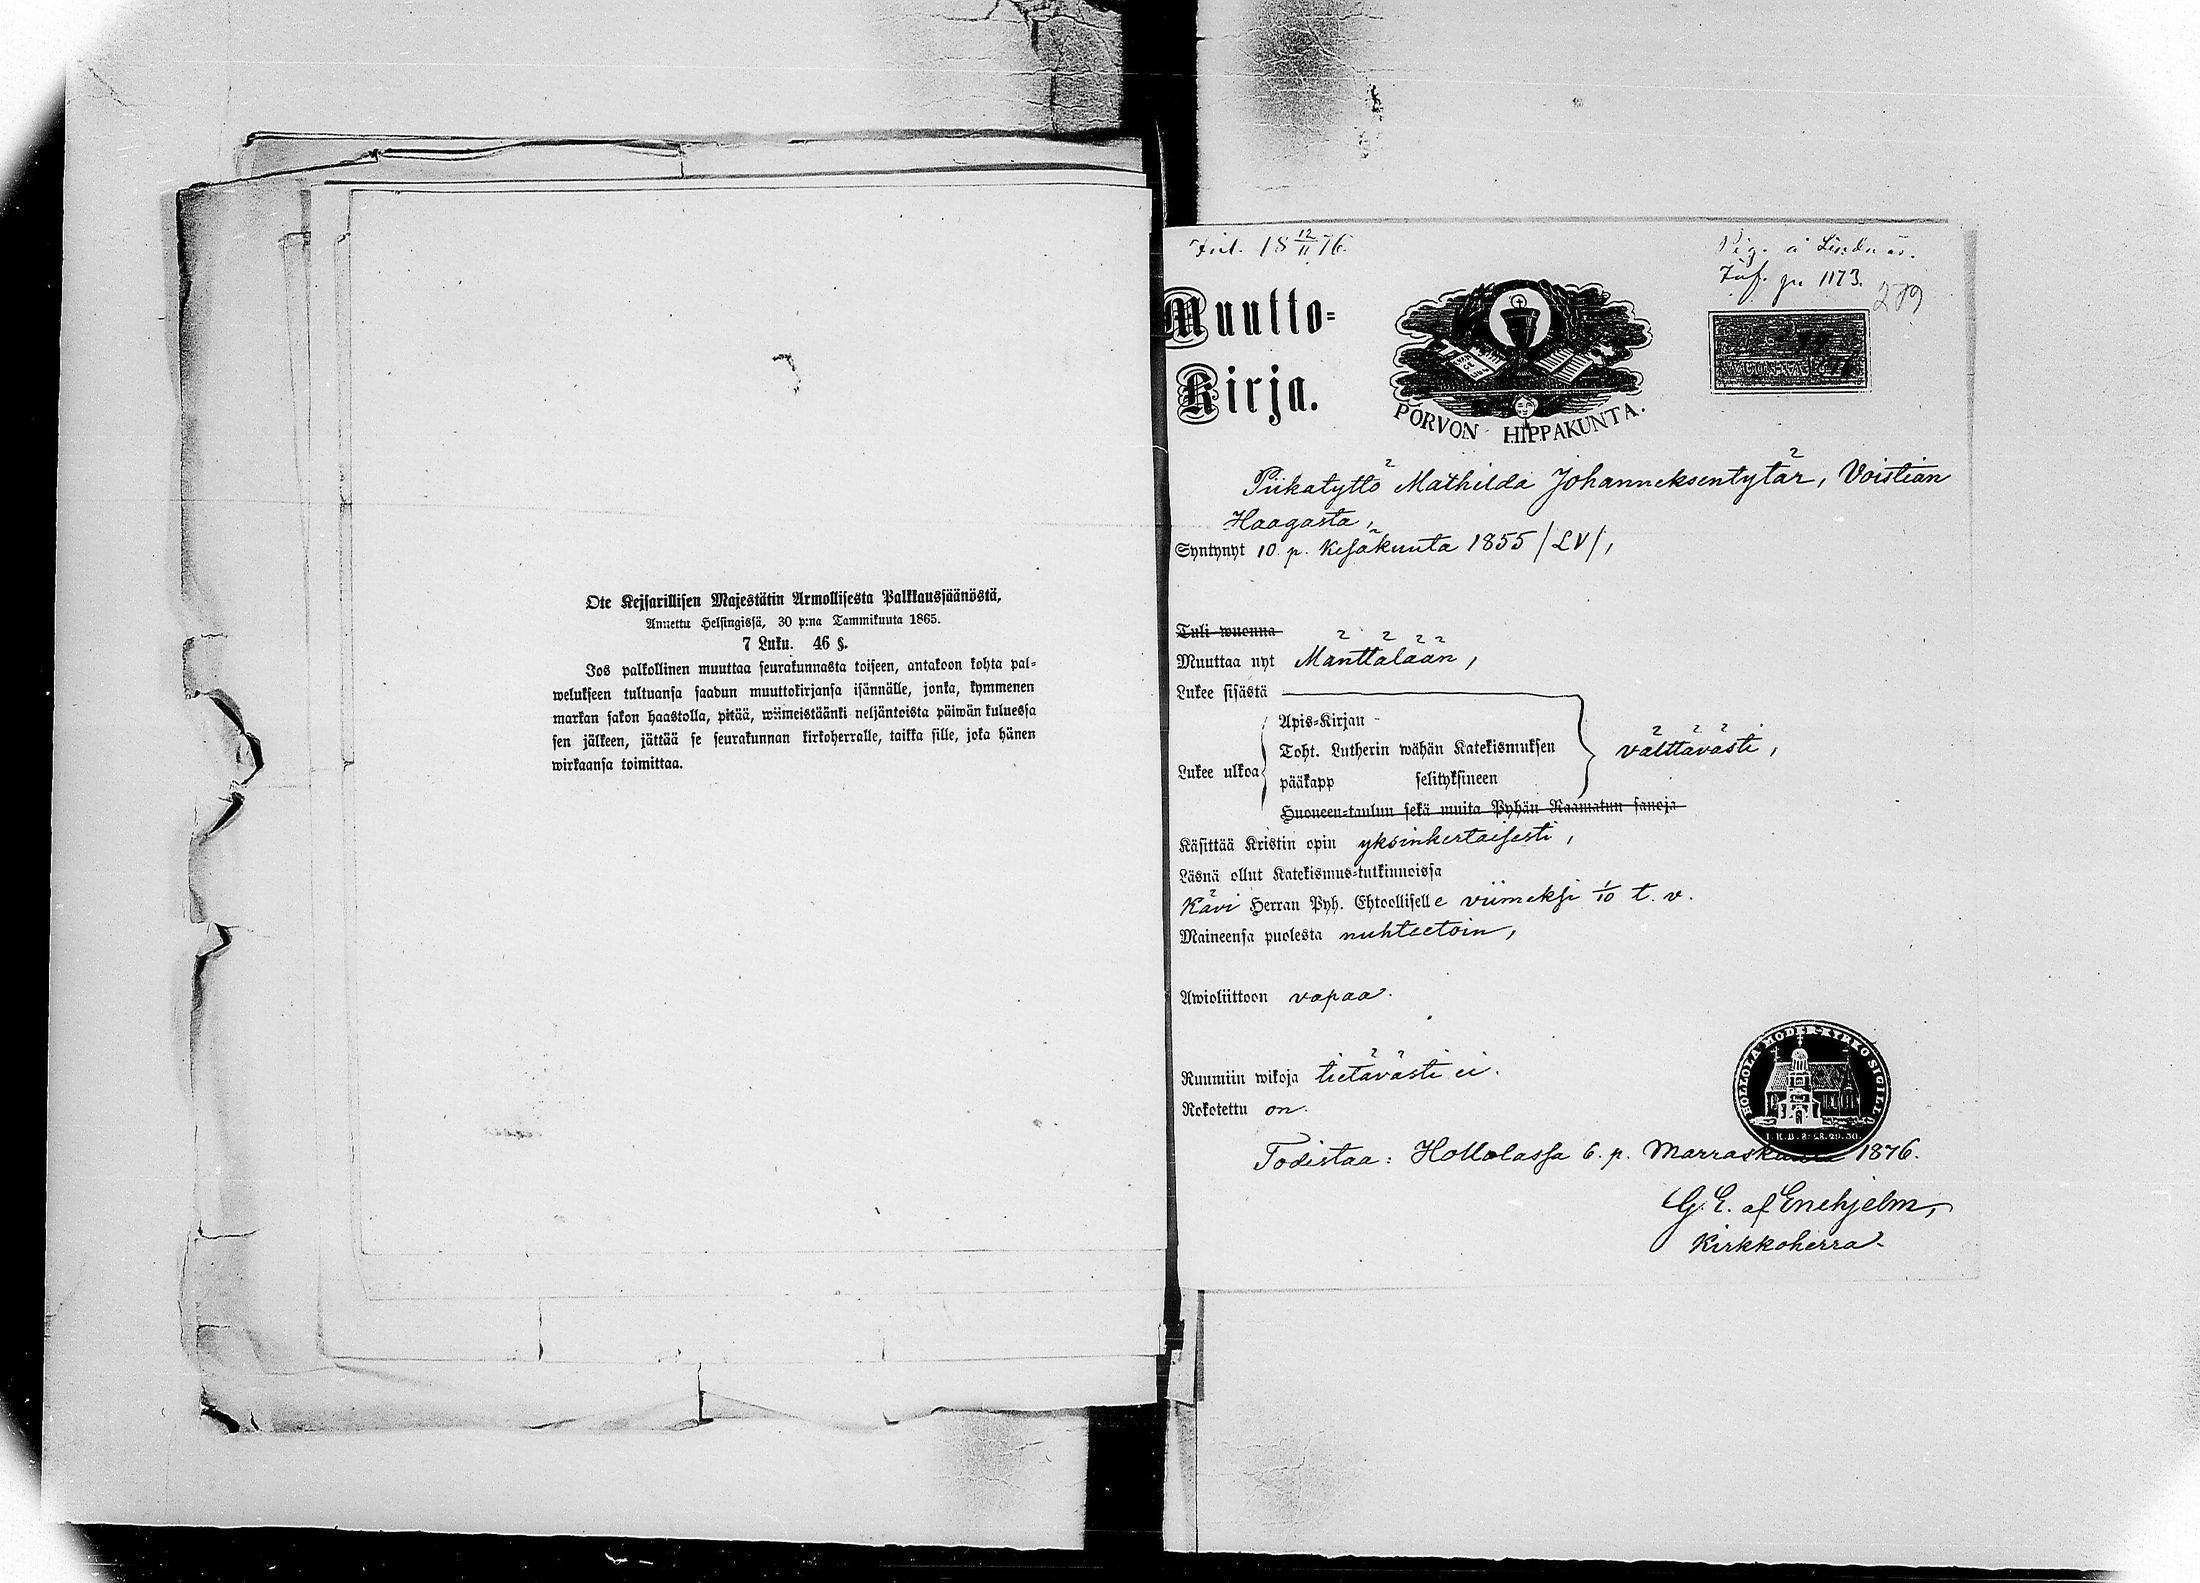 Ote Keisarillisen Majestätin Armollisesta Palkkaussäänöstä,
Annettu Helsingissä, 30 p:na Tammikuuta 1865.
7 Luku. 46 §.
Jos palkollinen muuttaa seurakunnasta toiseen, antakoon kohta pal-
welukseen tultuansa saadun muuttokirjansa isännälle, jonka, kymmenen
markan sakon haastolla, pitää, wiimeistäänki neljäntoista päiwän kuluessa
sen jälkeen, jättää se seurakunnan kirkoherralle, taikka sille, joka hänen
wirkaansa toimittaa.
Inl. 18 12/11 76.
Pig. å Lindnäs.
Inf. p. 1173.
Muutto-
Kirja.
PORVON HIPPAKUNTA.
Piikatyttö Mathilda Johanneksentytär, Voistian
Haagasta,
Syntynyt 10. p. Kesäkuuta 1855 /LV/,
Tuli wuonna
Muuttaa nyt Mänttälään,
Lukee sisästä
Apis-Kirjan
Toht. Lutherin wähän Katekismuksen
Lukee ulkoa
pääkapp selityksineen
välttävästi,
Huoneen-taulun sekä muita Pyhän Raamatun sanoja
Käsittää Kristin opin yksinkertaisesti,
Läsnä ollut Katekismus-tutkinnoissa
Kävi Herran Pyh. Ehtoolliselle viimeksi 1/10 t. v.
Maineensa puolesta nuhteetoin,
Awioliittoon vapaa.
Ruumiin wikoja tietävästi ei.
Rokotettu on.
HOLLOLA MODER-KYRKO SIGILL
I.K.B. 8: 28.29.30.
Todistaa: Hollolassa 6. p. Marraskuuta 1876.
G. E. af Enehjelm,
Kirkkoherra.